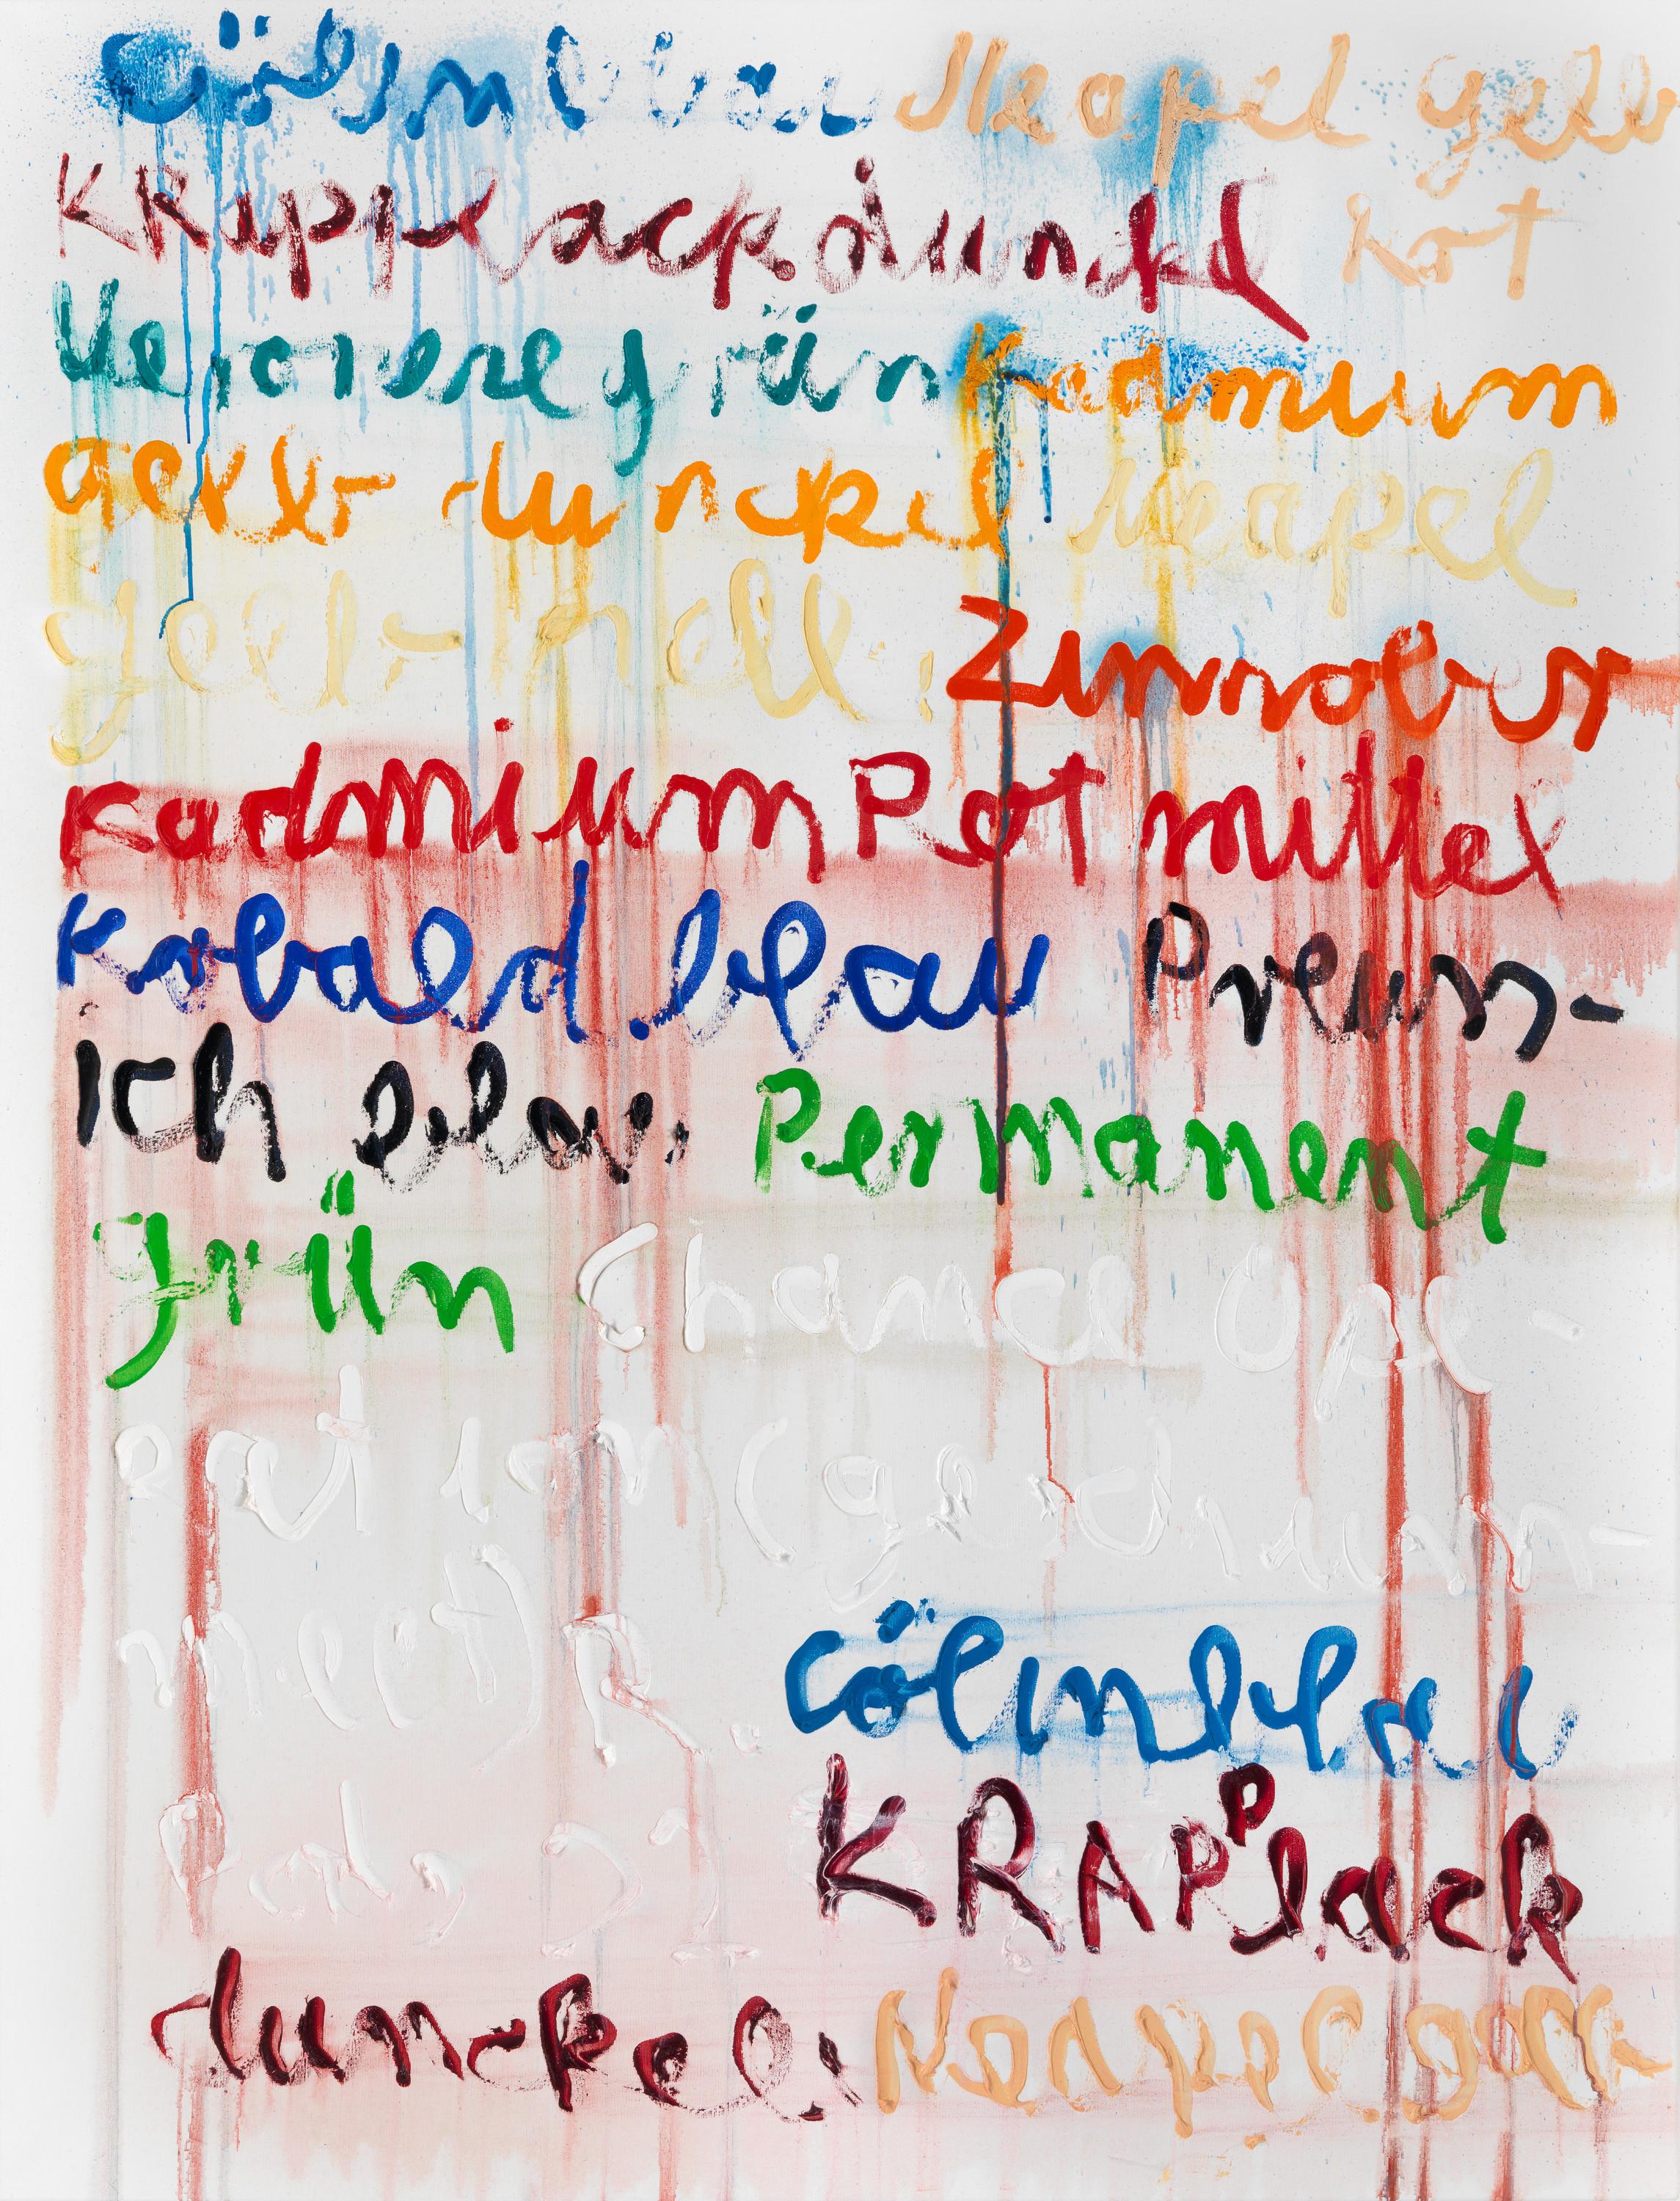 Cölinblau Neapel gelb
KRapplack.dunckel Rot
Veroneregrün Kadmium
gelb-dunckel Neapel
gelb-hell. Zinnober
Kadmium Rot mittel
Kobald.blau Preuss-
Ich blau. Permanent
grün Chance Ope-
ration (geschumm-
melt)
Cölinblau
KRAPPlack
dunckel. Neapel gelb-